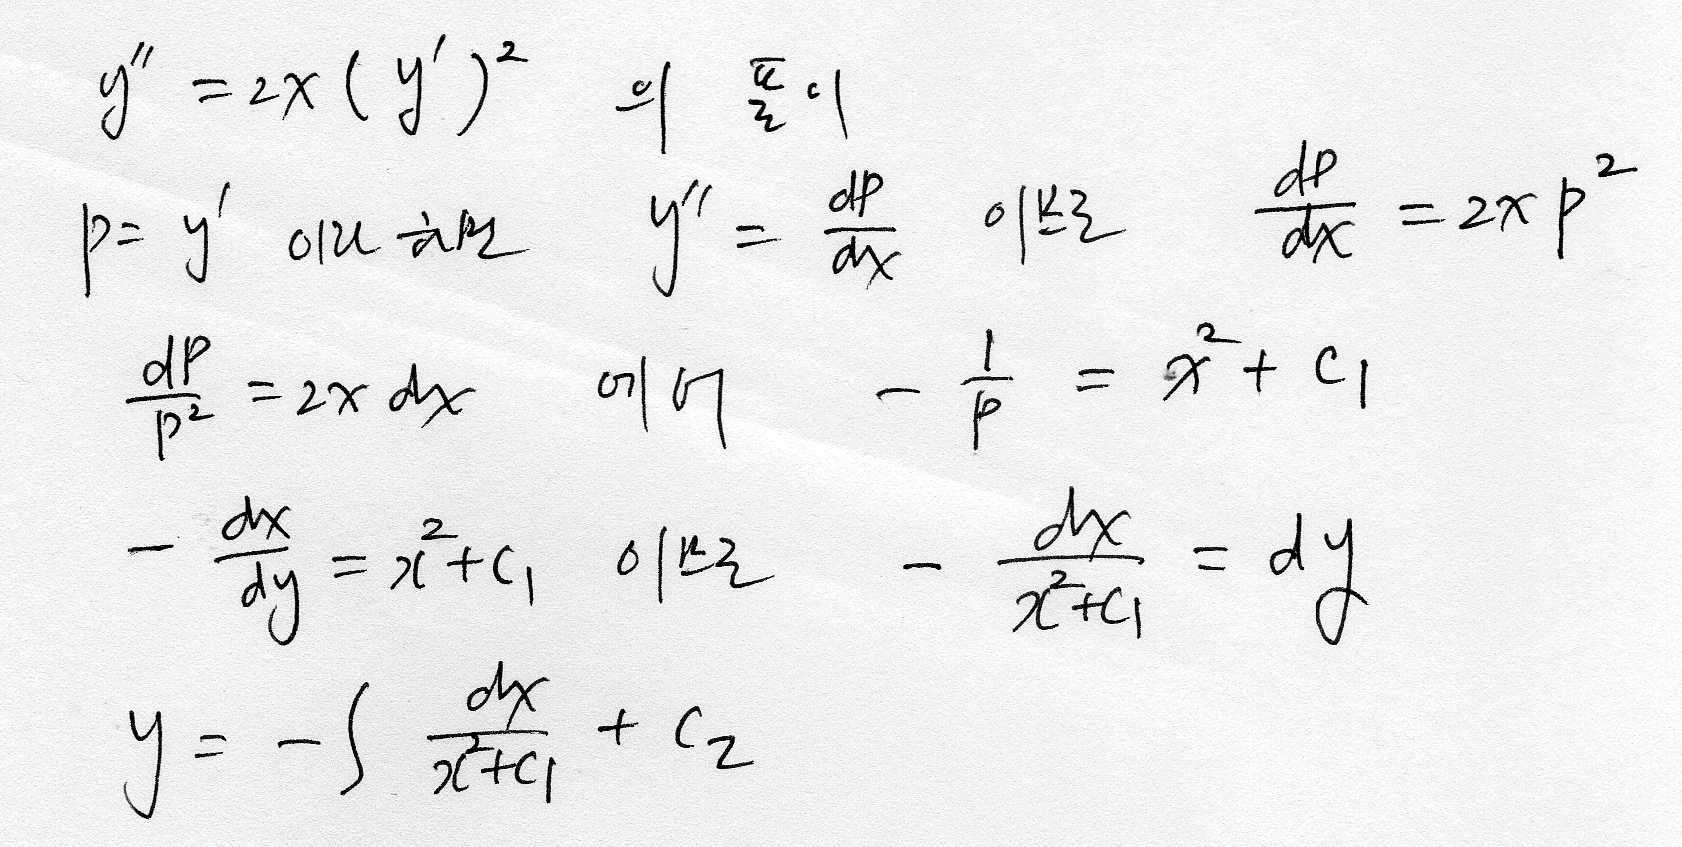 y'' = 2x(y')² 의 풀이
p = y' 이라 하면 y'' = dp/dx 이므로 dp/dx = 2xp²
dp/p² = 2x dx 에서 -1/p = x² + c₁
-dx/dy = x² + c₁ 이므로 -dx/(x²+c₁) = dy
y = -∫ dx/(x²+c₁) + c₂